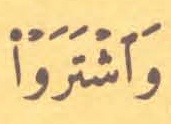 وَٱشْتَرَوْا۟